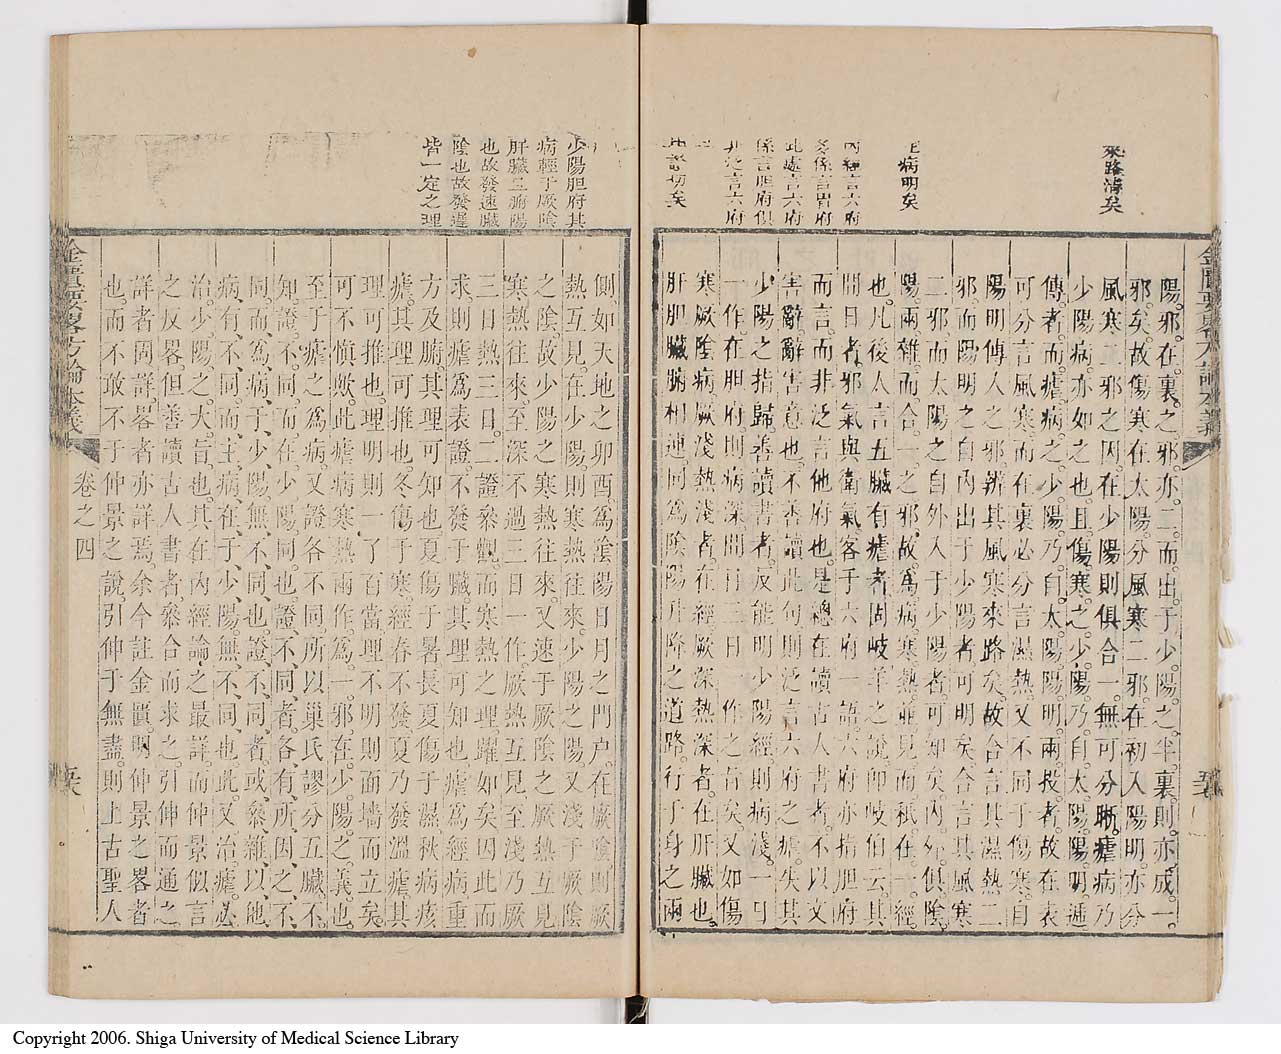 來路清矣
病明矣
內經言六府
多係言胃府
此處言六府
係言胆府俱
非泛言六府
此證切矣
陽邪在裏之邪亦二而出于少陽之半裏則亦成一
邪矣故傷寒在太陽分風寒二邪在初入陽明亦分
風寒二邪之因在少陽則俱合一無可分晰瘧病乃
少陽病亦如之也且傷寒之少陽乃自太陽陽明遞
傳者而瘧病之少陽乃自太陽陽明兩投者故在表
可分言風寒而在裏必分言濕熱又不同于傷寒自
陽明傳入之邪辨其風寒來路矣故合言其濕熱二
邪而陽明之自內出于少陽者可明矣合言其風寒
二邪而太陽之自外入于少陽者可知矣內外俱陰
陽兩雜而合一之邪故爲病寒熱並見而秖在一經
也凡後人言五臟有瘧者固岐羊之說卽岐伯云其
間日者邪氣與衛氣客于六府一語六府亦指胆府
而言而非泛言他府也是總在讀古人書者不以文
害辭辭害意也不善讀此句則泛言六府之瘧失其
少陽之指歸善讀書者反能明少陽經則病淺一日
一作在胆府則病深間日二日一作之旨矣又如傷
寒厥陰病厥淺熱淺者在經厥深熱深者在肝臟也
肝胆臟腑相連同爲陰陽升降之道路行于身之兩
少陽胆府其
病輕于厥陰
肝臟且腑陽
也故發速臟
陰也故發遲
皆一定之理
側如天地之卯酉爲陰陽日月之門户在厥陰則厥
熱互見在少陽則寒熱徃來少陽之陽又淺于厥陰
之陰故少陽之寒熱往來又速于厥陰之厥熱互見
寒熱往來至深不過三日一作厥熱互見至淺乃厥
三日熱三日二證叅觀而寒熱之理躍如矣因此而
求則瘧爲表證不發于臟其理可知也瘧爲經病重
方及腑其理可知也夏傷于暑長夏傷于濕秋病痎
瘧其理可推也冬傷于寒經春不發夏乃發溫瘧其
理可推也理明則一了百當理不明則面墻而立矣
可不慎歟此瘧病寒熱兩作爲一邪在少陽之義也
至于瘧之爲病又證各不同所以巢氏謬分五臟不
知證不同而在少陽同也證不同者各有所因之不
同而爲病于少陽無不同也證不同者或叅雜以他
病有不同而主病在于少陽無不同也此又治瘧必
治少陽之大旨也其在內經論之最詳而仲景似言
之反畧但善讀古人書者叅合而求之引伸而通之
詳者固詳畧者亦詳焉余今註金匱明仲景之畧者
也而不敢不于仲景之說引伸于無盡則上古聖人
金匱要畧方論本義
卷之四
Copyright 2006. Shiga University of Medical Science Library